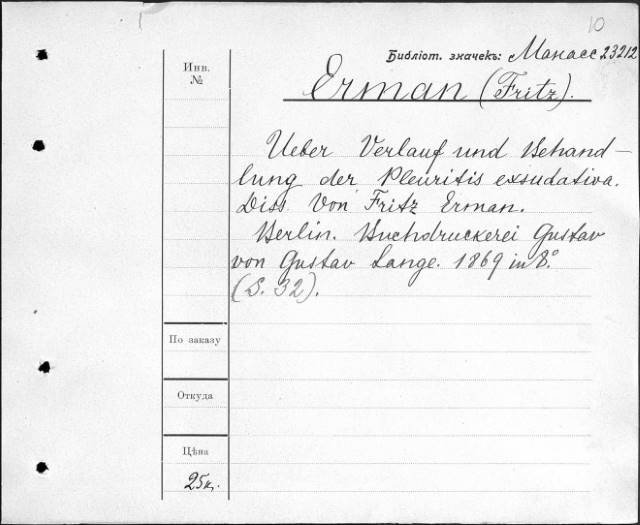 10
Библіот. значекъ: Манасс 23212
Инв.
№
Erman (Fritz).
Ueber Verlauf und Behand-
lung der Pleuritis exsudativa.
Diss von Fritz Erman.
Berlin. Buchdruckerei Gustav
von Gustav Lange. 1869 in 8.°
(S. 32).
По заказу
Откуда
Цѣна
25к.